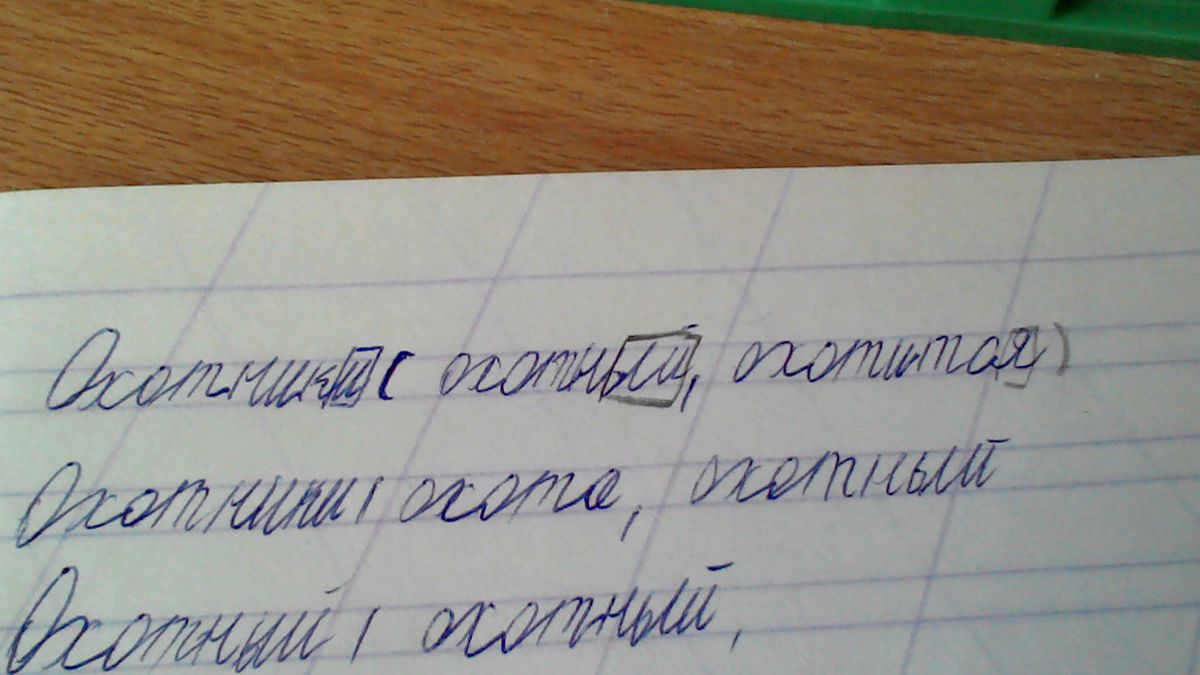 Охотники ( охотный, охотится)
Охотники ( охота, охотный
Охотный ( охотный,